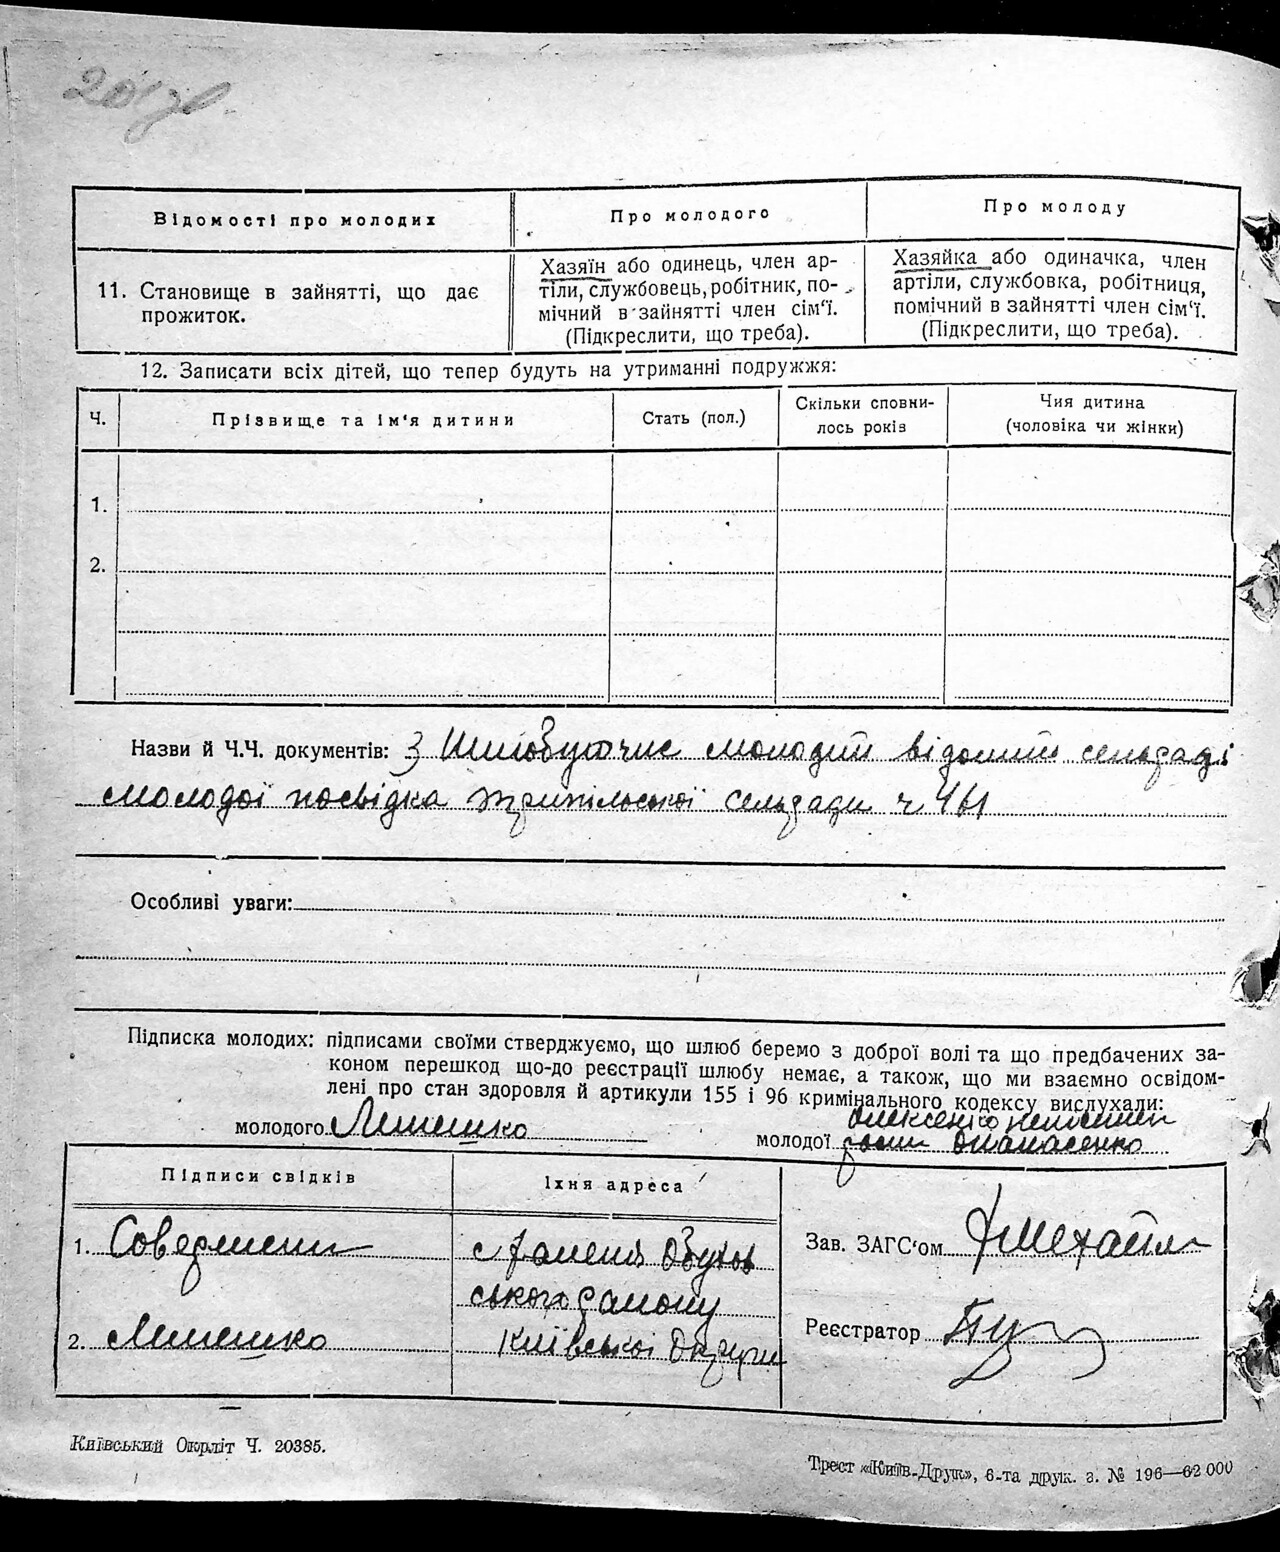 201зв.
Відомості про молодих
Про молодого
Про молоду
11. Становище в зайнятті, що дає
прожиток.
Хазяїн або одинець, член ар-
тіли, службовець, робітник, по-
мічний в зайнятті член сім'ї.
(Підкреслити, що треба).
Хазяйка або одиначка, член
артіли, службовка, робітниця,
помічний в зайнятті член сім'ї.
(Підкреслити, що треба).
12. Записати всіх дітей, що тепер будуть на утриманні подружжя:
Ч.
Прізвище та ім'я дитини
Стать (пол.)
Скільки сповни-
лось років
Чия дитина
(чоловіка чи жінки)
1.
2.
Назви й Ч.Ч. документів: З молодий відомий сельраді
молодої посвідка Трипільської сельради ч 461
Особливі уваги:
Підписка молодих: підписами своїми стверджуємо, що шлюб беремо з доброї волі та що предбачених за-
коном перешкод що-до реєстрації шлюбу немає, а також, що ми взаємно освідом-
лені про стан здоровля й артикули 155 і 96 кримінального кодексу вислухали:
молодого
Олексенко неписьмен
молодої Опанасенко
Підписи свідків
Їхня адреса
1.
с Обухов
ського району
2.
Київської Округи
Зав. ЗАГС'ом
Реєстратор
Київський Окрліт Ч. 20385.
Трест «Київ-Друк», 6-та друк. з. № 196—62 000